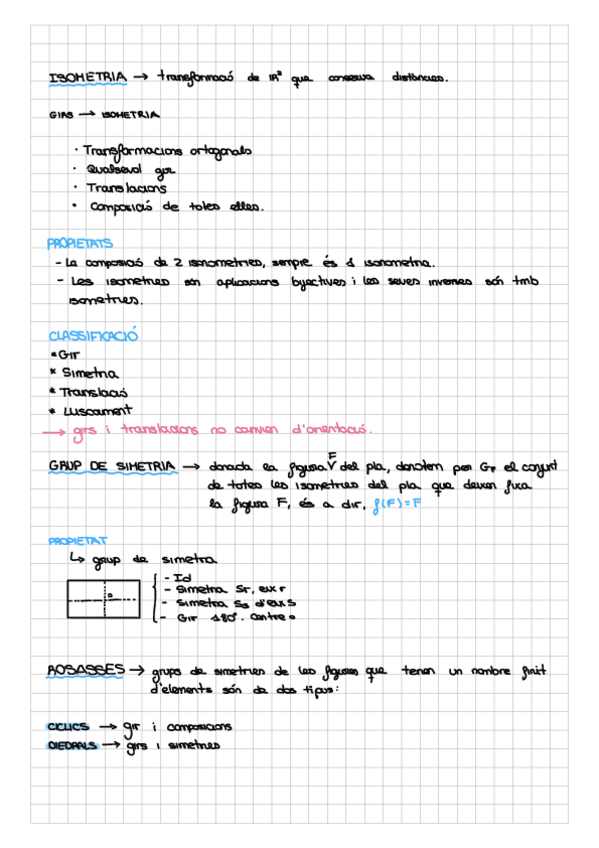 ISOMETRIA → transformació de IR² que conserva distàncies.
GIRS → ISOMETRIA
· Transformacions ortogonals
· Qualsevol gir
· Translacions
· Composició de totes elles.
PROPIETATS
- La composició de 2 isonometries, sempre és 1 isonometria.
- Les isometries són aplicacions byectives i les seves inverses són tmb
isometries.
CLASSIFICACIÓ
* Gir
* Simetria
* Translació
* Lliscament
→ girs i translacions no canvien d'orientació.
GRUP DE SIMETRIA → donada la figura F del pla, denotem per GF el conjunt
de totes les isometries del pla que deixen fixa
la figura F, és a dir, f(F)=F
PROPIETAT
↳ grup de simetria
- Id
- Simetria Sr, eix r
- Simetria Ss d'eix S
- Gir 180°. centre o
ROSASSES → grups de simetries de les figures que tenen un nombre finit
d'elements són de dos tipus:
CICLICS → gir i composicions
DIEDRALS → girs i simetries